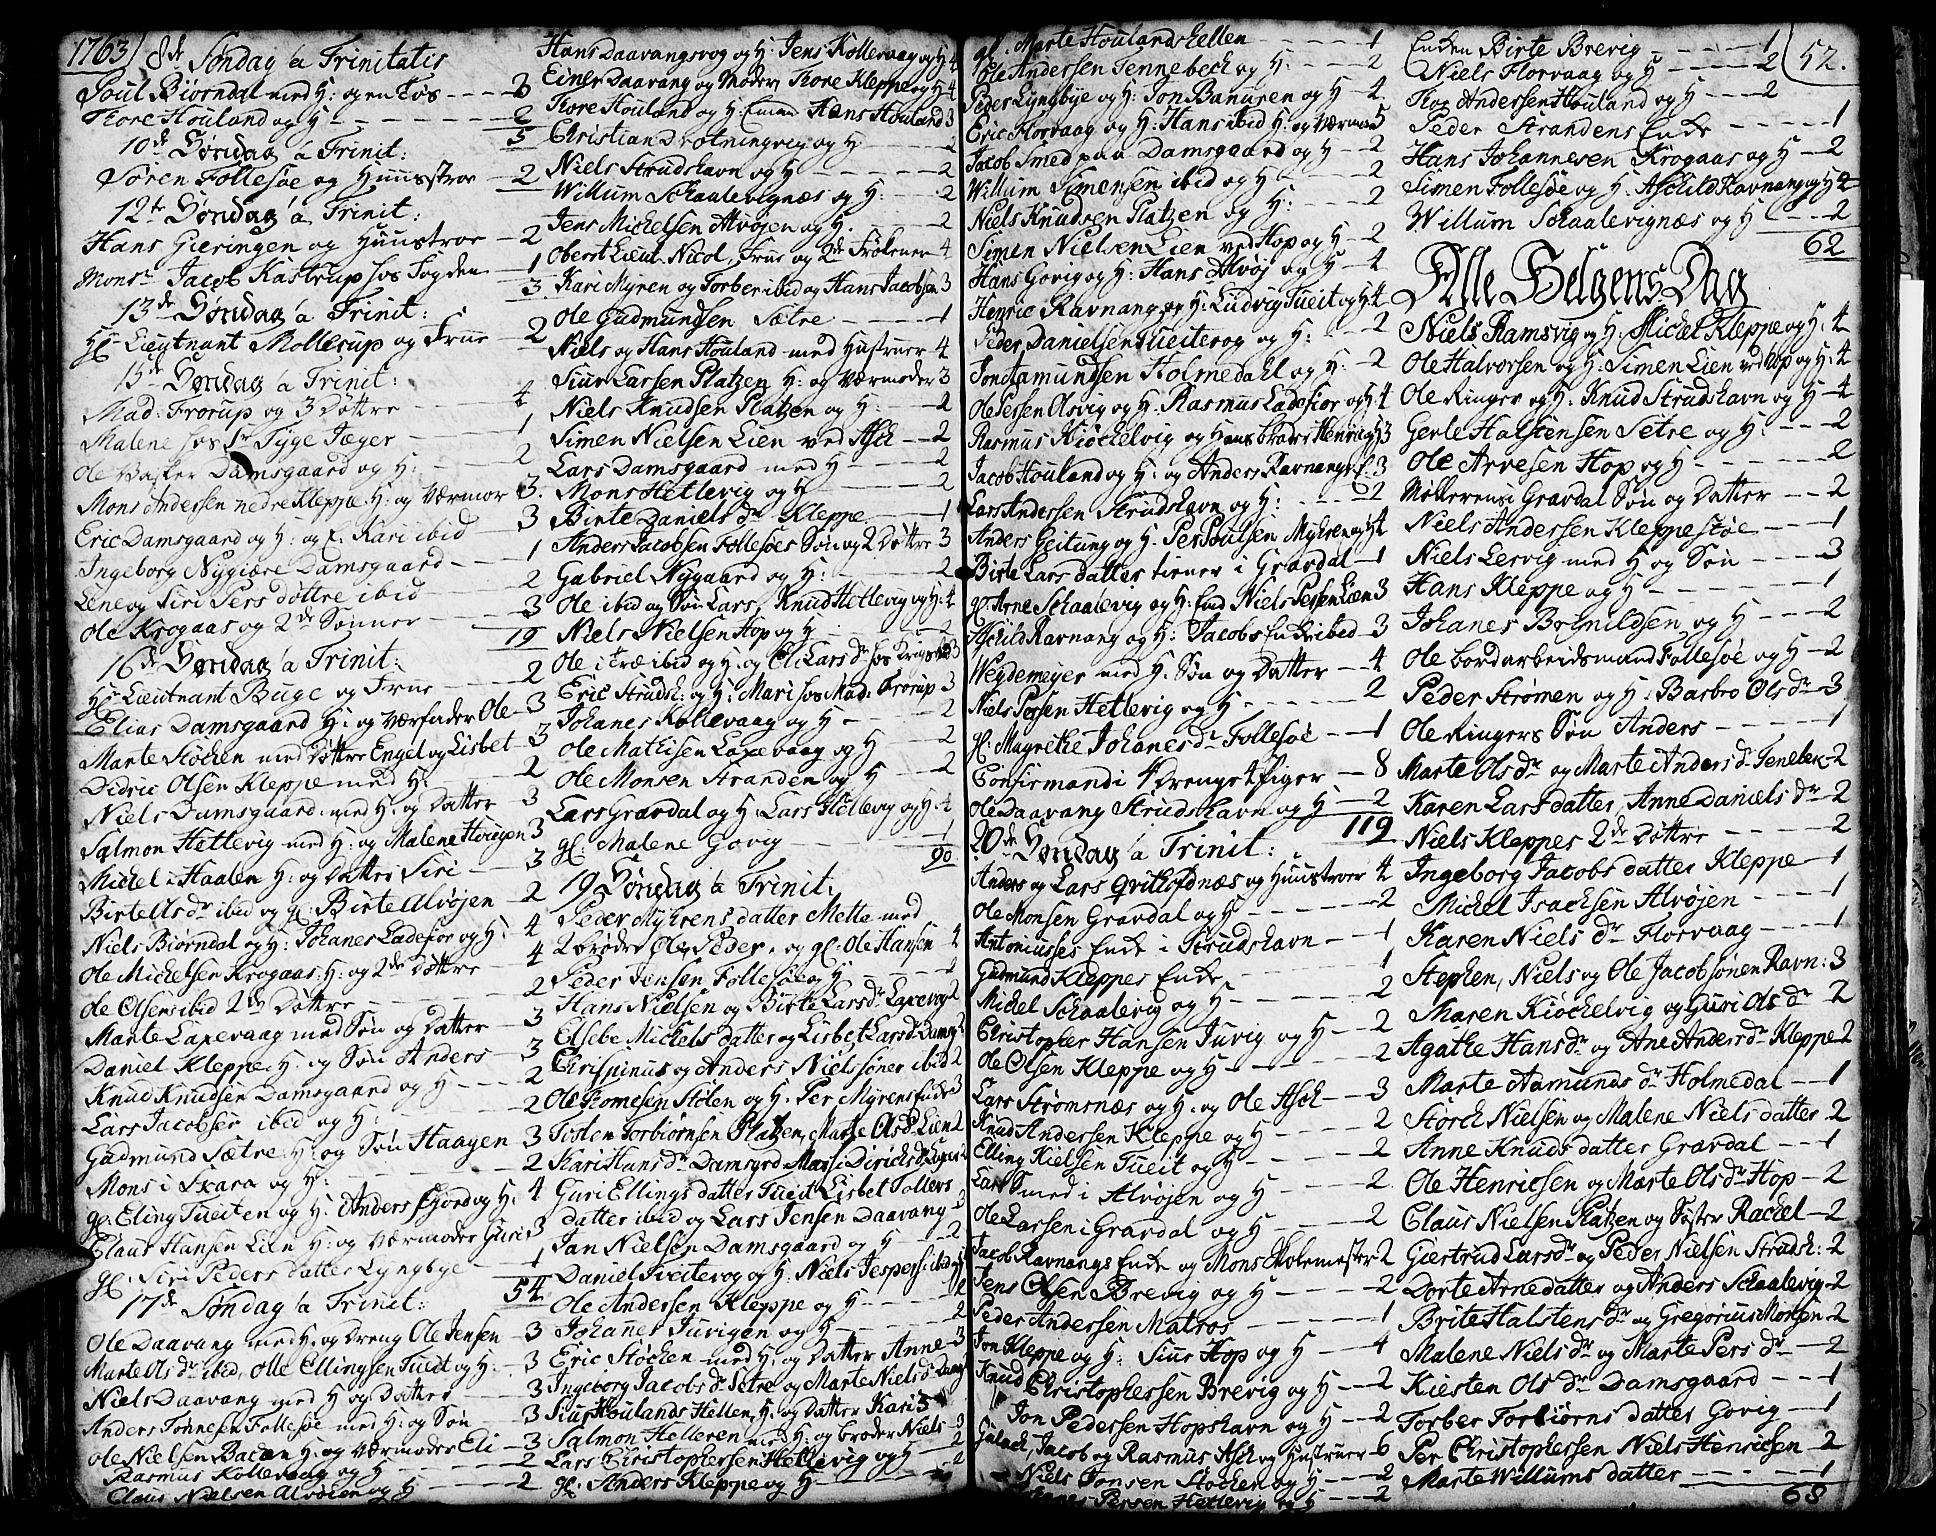 1763
8de Søndag a Trinitatis
Poul Biørndal med H: og en Tøs - - - 3
Thore Houland og H - - - 2
5
10de Søndag a Trinit:
Søren Follesøe og Huustroe - - 2
12te Søndag a Trinit:
Hans Gieringen og Huustroe - - 2
Monsr Jacob Kastrup hos Fogden - 1
3
13de Søndag a Trinit:
Hr Lieutnant Mollerup og Frue - - 2
15de Søndag a Trinit:
Mad: Frorup og 3 Døttre - - - 4
Malene hos Sr Tyge Jæger - - - 1
Ole Damsgaard og H: - - - 2
Mons Andersen nedre Kleppe H: og Værmor 3
Eric Damsgaard og H: og Kari ibid 3
Ingeborg Nygiære Damsgaard - - 1
Lene og Siri Pers døttre ibid - - 2
Ole Krogaas og 2de Sønner - - 3
19
16de Søndag a Trinit:
Hr Lieutnant Buge og Frue - - 2
Elias Damsgaard H: og Værfader Ole - 3
Marte Støcken med Døttre Engel og Lisbet 3
Didric Olsen Kleppe med H: - - 2
Niels Damsgaard med H. og Datter - - 3
Salmon Hettevig med H: og Malene 3
Michel i Haalen H: og Datter Siri - - 3
Birte Olsdr ibid og gl: Birte Alvøjen 2
Niels Biørndal og H: Johanes Ladefior og H: 4
Ole Michelsen Krogaas, H: og 2de Døttre 4
Ole Olsens ibid 2de Døttre - - - 2
Marte Laxevaag med Søn og Datter - - 3
Daniel Kleppe, H: og Søn Anders - 3
Knud Knudsen Damsgaard og H - - - 2
Lars Jacobsen ibid og H: - - - 2
Gudmund Sætre, H: og Søn Haagen 3
Mons i Skara og H: - - - 2
gl: Eling Tueiten og H: Anders Fjord og H: 4
Claus Hansen Lien H: og Værmoder Guri 3
gl: Siri Peders datter Lyngbye - - 1
54
17de Søndag a Trinit:
Ole Daavang med H. og Dreng Ole Jensen - 3
Marte Olsdr ibid, Olle Ellingsen Tueit og H: - 3
Niels Daavang med H og Datter - - 3
Anders Tønnesen Follesøe med H: og Søn - 3
Ole Nielsen Backen H: og Værmoder Eli - 3
Rasmus Kollevaag og H - - - 2
Claus Nielsen Alvøien og H - - - 2
Hans Daavangsvog og H: Jens Kollevaag og H: 4
Einer Daavang og Moder, Thore Kleppe og H 4
Thore Houland og H: Hans Houland 3
Christian Drotningvig og H - - - 2
Niels Strudshavn og H - - - 2
Willum Schaalevignæs og H: - 2
Jens Michelsen Alvøjen og H. - - 2
Oberst Lieut: Nicol, Frue og 2de Frøkener 4
Kari Myren og Torber ibid og Hans Jacobsen 3
Ole Gudmundsen Sætre - - - 1
Niels og Hans Houland med Hustruer 4
Siur Larsen Platzen H: og Værmoder 3
Niels Knudsen Platzen og H: - - 2
Simen Nielsen Lien ved Asck - - 2
Lars Damsgaard med H - - - 2
Mons Hetlevig og H - - - 2
Birte Daniels dr Kleppe - - - 1
Anders Jacobsen Follesøes Søn og 2 Døttre 3
Gabriel Nygaard og H: - - - 2
Ole ibid og Søn Lars, Knud Hetlevig og H: 4
Niels Nielsen Hop og H - - - 2
Ole i træ ibid og H: og Eli Lars dr hos 3
Eric Strudsh: og H: Mari hos Mad: Frorup 3
Johanes Kollevaag og H - - - 2
Ole Mathisen Laxevaag og H - - 2
Ole Monsen Stranden og H - - 2
Lars Gravdal og H: Lars Hetlevig og H - 4
gl: Malene Govig - - - 1
90
19 Søndag a Trinit:
Peder Myhrens datter Mette med
2 brødre Ole, Peder, og gl: Ole Hansen 4
Peder Jensen Follesøe og H - - - 2
Hans Nielsen og Birte Lars dr Laxevog 2
Elsebe Michels datter og Lisbet Lars dr Damsg 2
Chrispinus og Anders Niels sønner ibid 2
Ole Thomesen Stølen og H: Per Myrens 3
Tosten Torbiørnsen Platzen, Marte Olsdr Lien 2
Kari Hans dr Damsgrd Marsi Diricks dr
Guri Ellings datter Tueit Lisbet Tollevs
datter ibid og Lars Jensen Daavang 3
Jan Nielsen Damsgaard og H - - 2
Daniel Tveitevog og H: Niels Jespers: ibid og H
Ole Andersen Kleppe og H - - - 2
Johanes Juvigen og H - - - 2
Eric Støcken med H: og Datter Anne - 3
Ingeborg Jacobs dr Setre og Marte Niels dr
Siur Houlands Hellen, H: og Datter Kari 3
Salmon Helleren med H: og broder Niels 3
Lars Christophersen Hetlevig og H - - 2
gl: Anders Kleppe og H - - -
gl: Marte Houlandshellen - - - 1
Ole Andersen Tennebech og H: - - 2
Peder Lyngbye og H: Jon Banuren og H - 4
Eric Florvaag og H: Hans ibid H: og Værmor 5
Jacob Smed paa Damsgaard og H - 2
Willum Simensen ibid og H - - - 2
Niels Knudsen Platzen og H: - - 2
Simen Nielsen Lien ved Hop og H - 2
Hans Govig og H: Hans Alvøj og H - 4
Henric Ravnang og H: Ludvig Tueit og H: 4
Peder Danielsen Tueitevog og H: - 2
Jon Aamundsen Holmedahl og H: - 2
Ole Persen Olsvig og H: Rasmus Ladefior og H: 4
Rasmus Kiøckelvig og Hans broder Henric 3
Jacob Houland og H: og Anders Ravnangs 3
Lars Andersen Strudshavn og H: - - - 2
Anders Geitung og H: Per Poulsen Myhren og H 4
Birte Lars datter tiener i Gravdal - 1
gl: Arne Schaalevig og H: Niels Persen Lien 3
Aschild Ravnang og H: Jacobs Enke ibid - 3
Weydemeyer med H. Søn og Datter - 4
Niels Persen Hetlevig og H - - - 2
gl: Magrethe Johanes dr Follesøe - - 1
Confirmandi 4 Drenge 4 Piger - - 8
Ole Daavang Strudshavn og H - - 2
119
20de Søndag a Trinit:
Anders og Lars Qvitlofdnæs og Huustroer 4
Ole Monsen Gravdal og H - - - 2
Antoniuses Enke i Strudshavn - - 1
Gudmund Kleppes Enke - - - 1
Michel Schaalevig og H - - - 2
Christopher Hansen Juvig og H - - 2
Ole Olsen Kleppe og H - - - 2
Lars Strømsnæs og H: og Ole Asck - - 3
Knud Andersen Kleppe og H - - - 2
Elling Nielsen Tueit og H - - - 2
Lars Smed i Alvøjen og H - - - 2
Ole Larsen i Gravdal og H - - - 2
Jacob Ravnangs Enke og Mons Skolemester 2
Jens Olsen Brevig og H - - - 2
Peder Andersen Matros - - - 1
Jon Kleppe og H: Siur Hop og H - - 4
Knud Christophersen Brevig og H - - 2
Jon Pedersen Hopshavn og H - - 2
Gulach, Jacob og Rasmus Asck og Hustruer - 6
Niels Jonsen Støcken og H - - - 2
Johanes Persen Hetlevig og H - - - 2
52.
Enken Birte Brevig - - - 1
Niels Florvaag og H - - - 2
Thor Andersen Houland og H - - - 2
Peder Strandens Enke - - - 1
Hans Johannesen Krogaas og H - 2
Simen Follesøe og H: Aschild Ravnang og H 4
Willum Schaalevignæs og H - - - 2
62
Alle Helgens Dag
Niels Ramsvig og H: Michel Kleppe og H: 4
Ole Halvorsen og H: Simen Lien ved Hop og H: 4
Ole Ringer og H: Knud Strudshavn og H - 4
Gerle Halstensen Setre og H: - - 2
Ole Arvesen Hop og H - - - 2
Møllerens i Gravdal Søn og Datter - - 2
Niels Andersen Kleppestøe - - - 1
Niels Lervig med H og Søn - - - 3
Hans Kleppe og H - - - 1
Johanes Botnildsen og H - - - 2
Ole bordarbeidsmand Follesøe og H - 2
Peder Strømen og H: Barbro Olsdr - 3
Ole Ringers Søn Anders - - - 1
Marte Olsdr og Marte Anders dr Tenebek - 2
Karen Lars datter, Anne Daniels dr 2
Niels Kleppes 2de Døttre - - - 2
Ingeborg Jacobs datter Kleppe - 1
Michel Isachsen Alvøjen - - - 1
Karen Niels dr Florvaag - - - 1
Stephen, Niels og Ole Jacobsønen Ravn: 3
Maren Kiøckelvig og Guri Ols dr 2
Agathe Hans dr og Ane Anders dr Kleppe 2
Marte Aamunds dr Holmedal - - 1
Storck Nielsen og Malene Niels datter - 2
Anne Knuds datter Gravdal - - 1
Ole Henricsen og Marte Ols dr Hop - 2
Claus Nielsen Platzen og Søster Rachel - 2
Giertrud Lars dr og Peder Nielsen Strudsh: - 2
Dorte Arnedatter og Anders Schaalevig - 2
Brite Halstens dr og Gregorius Monsen - 2
Malene Niels dr og Marte Pers dr - - 2
Kiersten Ols dr Damsgaard - - - 1
Torber Torbiørns datter Govig - - 1
Per Christophersen Niels Henricsen - 2
Marte Willums datter - - - 1
68